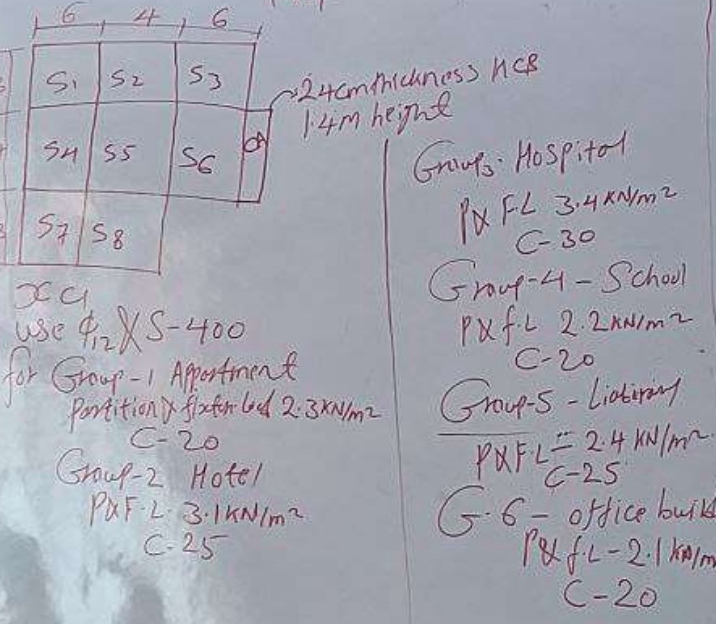 6 4 6
S1 S2 S3
24cm thickness HCB
1.4m height
S4 S5 S6
S7 S8
use φ12 & S-400
for Group-1 Appartment
Partition & fixture load 2.3KN/m2
C-20
Group-2 Hotel
P&F.L. 3.1KN/m2
C-25
Group3. Hospital
P& F.L 3.4KN/m2
C-30
Group-4 - School
P&f.L 2.2KN/m2
C-20
Group-5 -
P&F L = 2.4 KN/m2
C-25
G.6 - office build
P& f.L - 2.1 KN/m
C-20